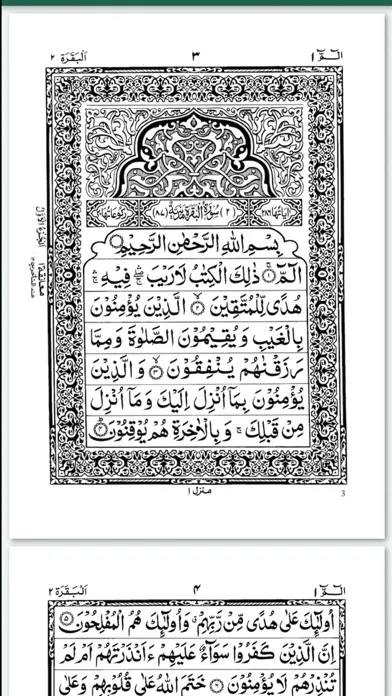 الٓمّٓ ١
٣
اَلْبَقَرَة ٢
اٰيَاتُهَا ٢٨٦
(٢) سُوْرَةُ الْبَقَرَةِ مَدَنِيَّةٌ (٨٧)
رُكُوْعَاتُهَا
بِسْمِ اللّٰهِ الرَّحْمٰنِ الرَّحِيْمِ
الٓمّٓ ۚ ۝١ ذٰلِكَ الْكِتٰبُ لَا رَيْبَ ۛۚ فِيْهِ ۛۚ
هُدًى لِّلْمُتَّقِيْنَ ۙ ۝٢ الَّذِيْنَ يُؤْمِنُوْنَ
بِالْغَيْبِ وَيُقِيْمُوْنَ الصَّلٰوةَ وَمِمَّا
رَزَقْنٰهُمْ يُنْفِقُوْنَ ۙ ۝٣ وَالَّذِيْنَ
يُؤْمِنُوْنَ بِمَآ اُنْزِلَ اِلَيْكَ وَمَآ اُنْزِلَ
مِنْ قَبْلِكَ ۚ وَبِالْاٰخِرَةِ هُمْ يُوْقِنُوْنَ ۝٤
اَلْجُزْءُ الْاَوَّلُ
معانقة ١
منزل ١
3
الٓمّٓ ١
٤
اَلْبَقَرَة ٢
اُولٰٓئِكَ عَلٰى هُدًى مِّنْ رَّبِّهِمْ ۙ وَاُولٰٓئِكَ هُمُ الْمُفْلِحُوْنَ ۝٥
اِنَّ الَّذِيْنَ كَفَرُوْا سَوَآءٌ عَلَيْهِمْ ءَاَنْذَرْتَهُمْ اَمْ لَمْ
تُنْذِرْهُمْ لَا يُؤْمِنُوْنَ ۝٦ خَتَمَ اللّٰهُ عَلٰى قُلُوْبِهِمْ وَعَلٰى